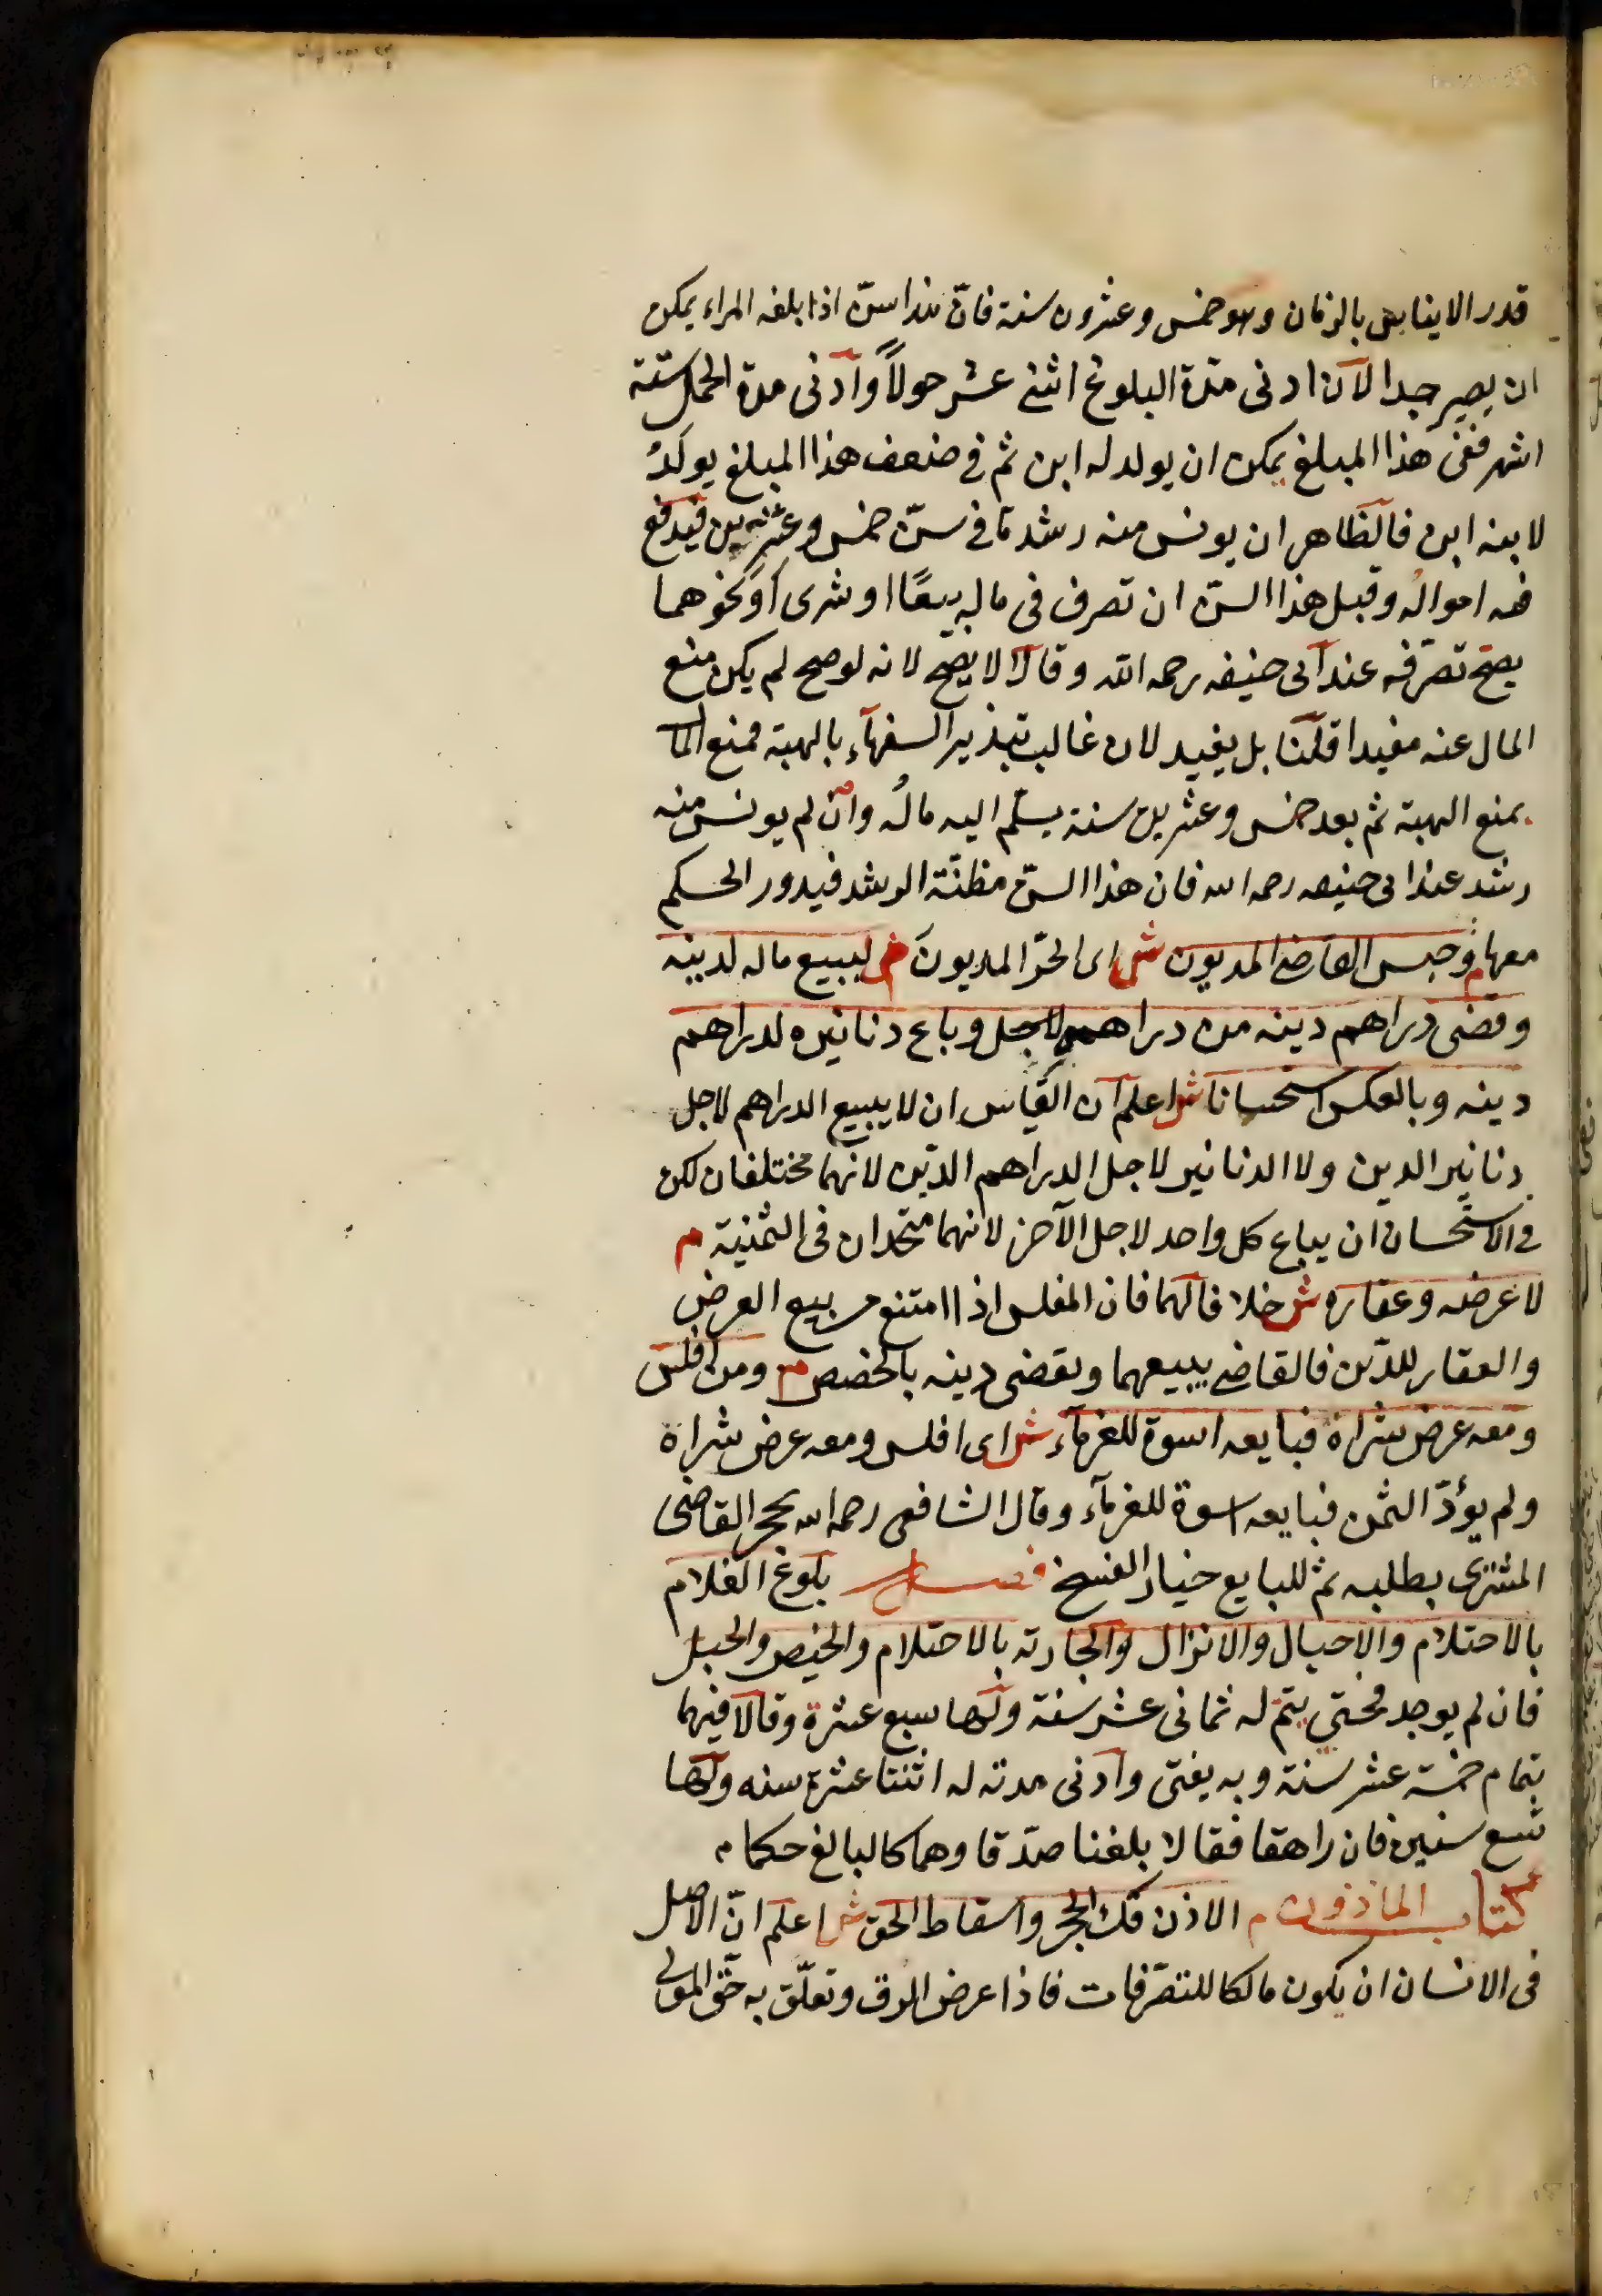 قدر الايناس بالزمان وهو خمس وعشرون سنة فان هذا سنّ اذا بلغه المراء يمكن
ان يصير جدا لان ادنى مدّة البلوغ اثنى عشر حولاً وادنى مدة الحمل ستّة
اشهر ففى هذا المبلغ يمكن ان يولد له ابن ثم فى ضعف هذا المبلغ يولدُ
لابنه ابن فالظاهر ان يونس منه رشد ما فى سنّ خمس وعشرين فيدفع
فيه اموالهُ وقبل هذا السنّ ان تصرف فى ماله بيعًا او شرى او نحوهما
يصحّ تصرّفه عند ابى حنيفه رحمه الله وقالا لا يصحّ لانه لو صح لم يكن منع
المال عنه مفيدا قلنا بل يفيد لان غالب تبذير السفهآء بالهبة فمنع المال
يمنع الهبة ثم بعد خمس وعشرين سنة يسلّم اليه مالهُ وان لم يونس منه
رشد عند ابى حنيفه رحمه الله فان هذا السنّ مظنّة الرشد فيدور الحكم
معها م وحبس القاضى المديون ش اى الحرّ المديون م ليبيع ماله لدينه
وقضى دراهم دينه من دراهمه لاجل وباع دنانيره لدراهم
دينه وبالعكس استحسانا ش اعلم ان القياس ان لا يبيع الدراهم لاجل
دنانير الدين ولا الدنانير لاجل الدراهم الدين لانهما مختلفان لكن
فى الاستحسان ان يباع كل واحد لاجل الآخر لانهما متحدان فى الثمنية م
لا عرضه وعقاره ش خلافا لهما فان المفلس اذا امتنع من بيع العرض
والعقار للدّين فالقاضى يبيعهما ويقضى دينه بالحصص م ومن افلس
ومعه عرض شراه فبايعه اسوة للغرمآء ش اى افلس ومعه عرض شراه
ولم يؤدّ الثمن فبايعه اسوة للغرمآء وقال الشافعى رحمه الله يحجر القاضى
المشترى بطلبه ثم للبايع خيار الفسخ فصل بلوغ الغلام
بالاحتلام والاحبال والانزال والجارية بالاحتلام والحيض والحبل
فان لم يوجد فحتى يتمّ له ثمانى عشر سنة ولها سبع عشرة وقالا فيهما
بتمام خمسة عشر سنة وبه يفتى وادنى مدته له اثنتا عشرة سنه ولها
تسع سنين فان راهقا فقالا بلغنا صدّقا وهما كالبالغ حكما م
كتاب الماذون م الاذن فكّ الحجر واسقاط الحق ش اعلم انّ الاصل
فى الانسان ان يكون مالكا للتصرّفات فاذا عرض الرق وتعلّق به حق المولى